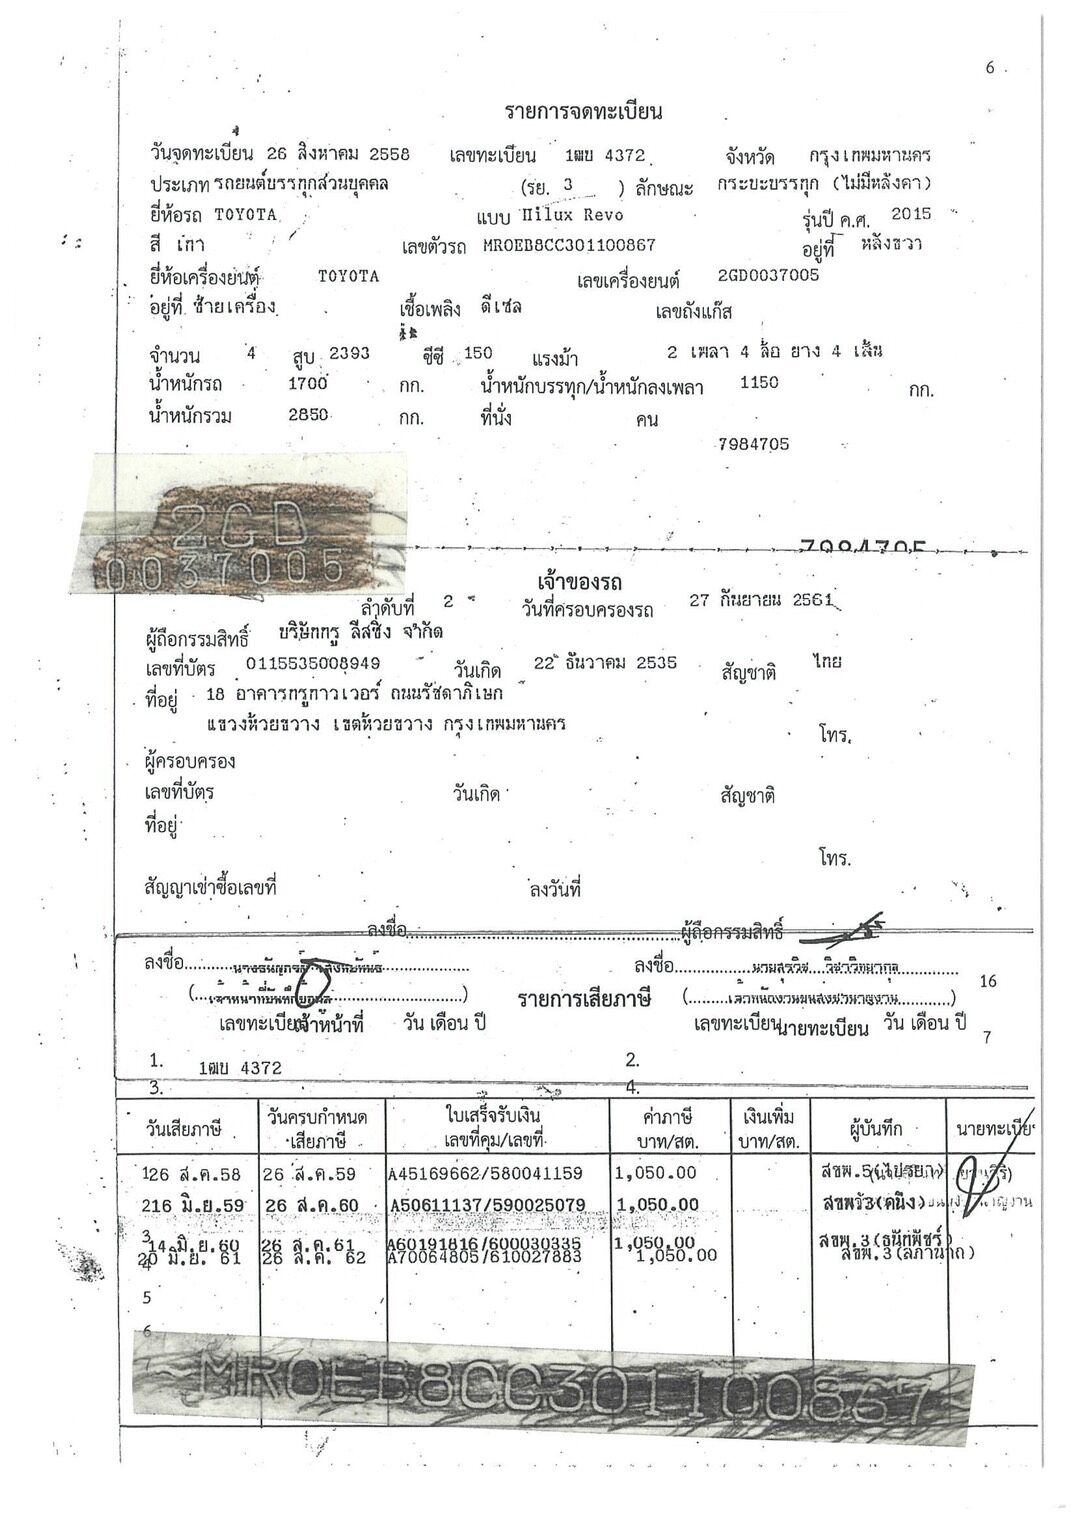 6
รายการจดทะเบียน
วันจดทะเบียน 26 สิงหาคม 2558 เลขทะเบียน 1ฒบ 4372 จังหวัด กรุงเทพมหานคร
ประเภท รถยนต์บรรทุกส่วนบุคคล (รย. 3 ) ลักษณะ กระบะบรรทุก (ไม่มีหลังคา)
ยี่ห้อรถ TOYOTA แบบ Hilux Revo รุ่นปี ค.ศ. 2015
สี เทา เลขตัวรถ MROEB8CC301100867 อยู่ที่ หลังขวา
ยี่ห้อเครื่องยนต์ TOYOTA เลขเครื่องยนต์ 2GD0037005
อยู่ที่ ซ้ายเครื่อง เชื้อเพลิง ดีเซล เลขถังแก๊ส
จำนวน 4 สูบ 2393 ซีซี 150 แรงม้า 2 เพลา 4 ล้อ ยาง 4 เส้น
น้ำหนักรถ 1700 กก. น้ำหนักบรรทุก/น้ำหนักลงเพลา 1150 กก.
น้ำหนักรวม 2850 กก. ที่นั่ง คน
7984705
2GD
0037005
7984705
เจ้าของรถ
ลำดับที่ 2 วันที่ครอบครองรถ 27 กันยายน 2561
ผู้ถือกรรมสิทธิ์ บริษัททรู ลีสซิ่ง จำกัด
เลขที่บัตร 0115535008949 วันเกิด 22 ธันวาคม 2535 สัญชาติ ไทย
ที่อยู่ 18 อาคารทรูทาวเวอร์ ถนนรัชดาภิเษก
แขวงห้วยขวาง เขตห้วยขวาง กรุงเทพมหานคร
โทร.
ผู้ครอบครอง
เลขที่บัตร วันเกิด สัญชาติ
ที่อยู่
โทร.
สัญญาเช่าซื้อเลขที่ ลงวันที่
ลงชื่อ ผู้ถือกรรมสิทธิ์
ลงชื่อ ลงชื่อ นายสุรวิช วิชาวิทยากุล
16
รายการเสียภาษี
เลขทะเบียน เจ้าหน้าที่ วัน เดือน ปี เลขทะเบียน นายทะเบียน วัน เดือน ปี
7
1. 1ฒบ 4372 2.
3. 4.
วันเสียภาษี วันครบกำหนดเสียภาษี ใบเสร็จรับเงิน เลขที่คุม/เลขที่ ค่าภาษี บาท/สต. เงินเพิ่ม บาท/สต. ผู้บันทึก นายทะเบียน
1 26 ส.ค.58 26 ส.ค.59 A45169662/580041159 1,050.00
2 16 มิ.ย.59 26 ส.ค.60 A50611137/590025079 1,050.00
3 14 มิ.ย.60 26 ส.ค.61 A60191816/600030335 1,050.00 สขพ.3(ธนัทพัชร์)
4 20 มิ.ย. 61 26 ส.ค. 62 A70064805/610027883 1,050.00
5
6
MROEB8CC301100867